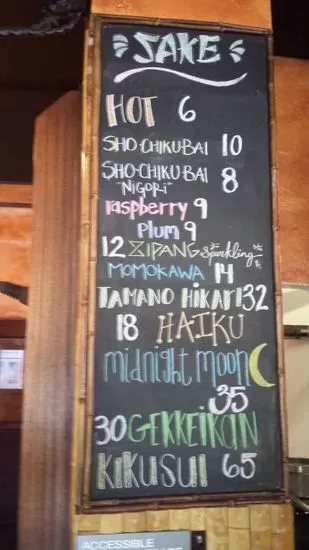 SAKE
HOT 6
SHO-CHIKUBAI 10
SHO-CHIKUBAI 8
"NIGORI"
raspberry 9
Plum 9
12 ZIPANG sparkling
MOMOKAWA 14
TAMANO HIKARI 32
18 HAIKU
midnight moon
35
30 GEKKEIKAN
KIKUSUI 65
ACCESSIBLE